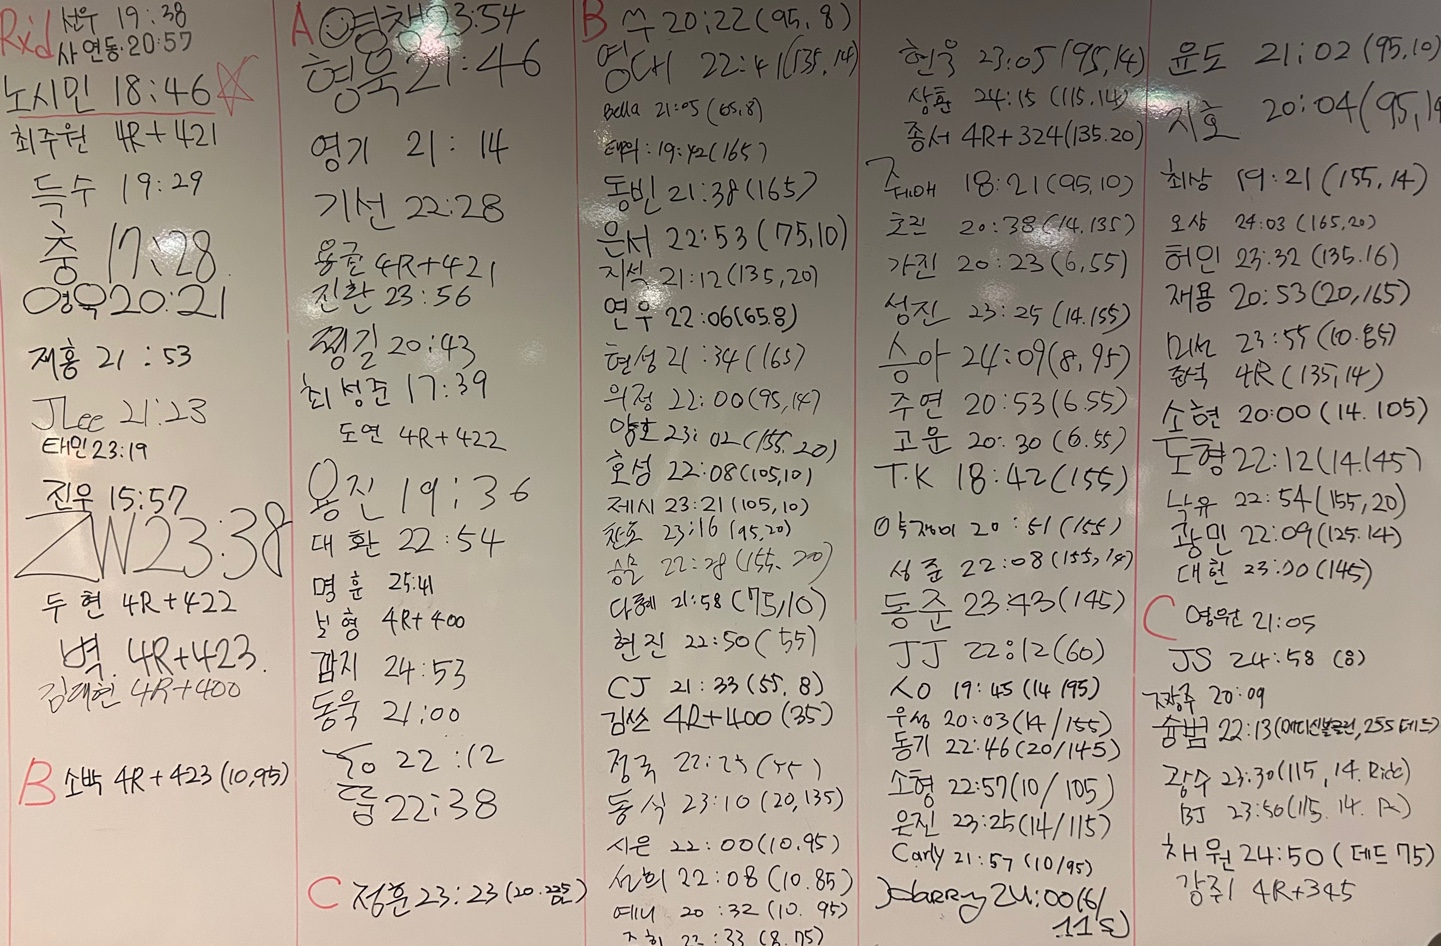 Rxd 선우 19:38
사연동·20:57
노시민 18:46
최주원 4R+421
득수 19:29
충 17:28
영욱 20:21
재홍 21:53
JLee 21:23
태민 23:19
진우 15:57
ZW 23:38
두현 4R+422
벽. 4R+423.
김대현 4R+400
B 소박 4R+423 (10,95)
A 영챙 23:54
형욱 21:46
영기 21:14
기선 22:28
용군 4R+421
진환 23:56
찡길 20:43
최성준 17:39
도연 4R+422
용진 19:36
대환 22:54
명훈 25:41
보형 4R+400
깜지 24:53
동욱 21:00
22:12
22:38
C 정훈 23:23 (20.225)
B 쑤 20:22 (95,8)
영대 22:41 (135,14)
Bella 21:05 (65,8)
19:42 (165)
동빈 21:38 (165)
은서 22:53 (75,10)
지석 21:12 (135,20)
연우 22:06 (65.8)
현성 21:34 (165)
의정 22:00 (95,14)
양호 23:02 (155.20)
호성 22:08 (105,10)
제시 23:21 (105,10)
찬호 23:16 (95,20)
승문 22:28 (155.20)
다혜 21:58 (75,10)
현진 22:50 (55)
CJ 21:33 (55,8)
김쏘 4R+400 (35)
정국
동석 23:10 (20,135)
시은 22:00 (10.95)
선희 22:08 (10.85)
예니 20:32 (10.95)
22:33 (8.75)
헌욱 23:05 (95,14)
상훈 24:15 (115,14)
종서 4R+324 (135.20)
18:21 (95,10)
호진 20:38 (14.135)
가진 20:23 (6,55)
성진 23:25 (14.155)
승아 24:09 (8,95)
주연 20:53 (6.55)
고운 20:30 (6.55)
T.K 18:42 (155)
약쟁이 20:51 (155)
성준 22:08 (155,14)
동준 23:43 (145)
JJ 22:12 (60)
ㅅㅇ 19:45 (14/95)
우성 20:03 (14/155)
동기 22:46 (20/145)
소형 22:57 (10/105)
은진 23:25 (14/115)
Carly 21:57 (10/95)
Harry 24:00 (6/
115)
윤도 21:02 (95,10)
지호 20:04 (95,14
최상 19:21 (155,14)
오상 24:03 (165,20)
허인 23:32 (135.16)
재용 20:53 (20,165)
미선 23:55 (10.85)
준석 4R (135,14)
소현 20:00 (14.105)
도형 22:12 (14.145)
낙유 22:54 (155,20)
광민 22:09 (125.14)
대헌 23:00 (145)
C 영원 21:05
JS 24:58 (8)
장주 20:09
승범 22:13 (메디신볼클린, 255 데드)
광수 23:30 (115, 14. Rxd)
BJ 23:50 (115. 14. A)
채원 24:50 (데드 75)
강주1 4R+345